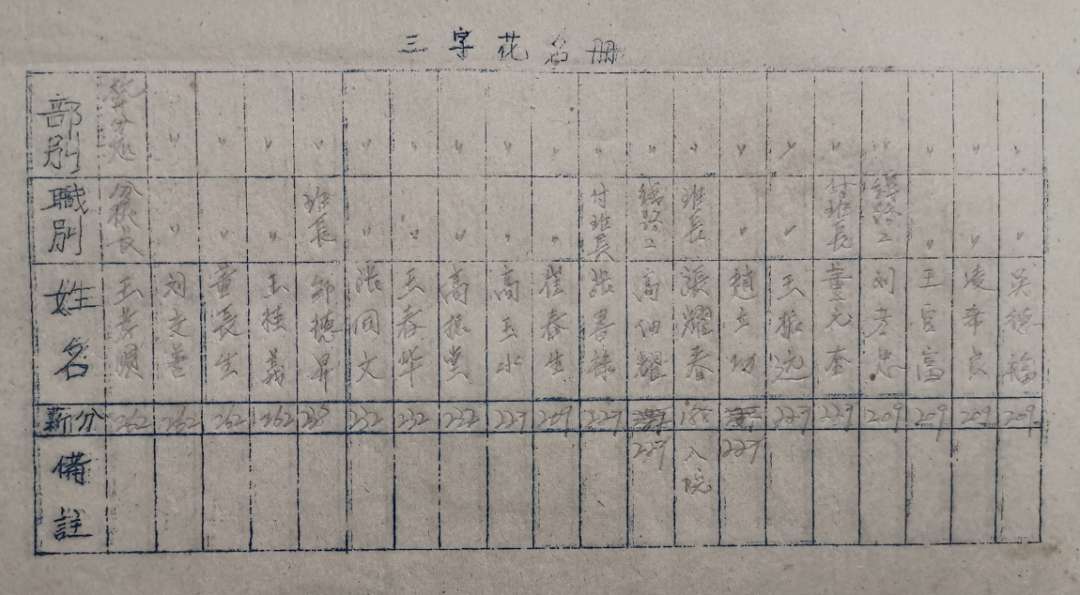 三字花名册
部別 〃 〃 〃 〃 〃 〃 〃 〃 〃 〃 〃 〃 〃 〃 〃 〃 〃 〃 〃
職別 分隊长 〃 〃 〃 班長 〃 〃 〃 〃 〃 付班長 班長 〃 〃 付班長 〃 〃 〃
姓名 王景明 刘文善 董長生 王桂義 郭德昇 張同文 王春华 高振堂 高玉水 崔春生 張善禄 高田耀 張耀春 趙士功 王振远 董元奎 刘孝忠 王宫富 凌奉良 吴德福
薪分 262 262 262 262 232 232 232 222 227 209 227 185 227 227 209 209 209 209
備註 227 入院 227